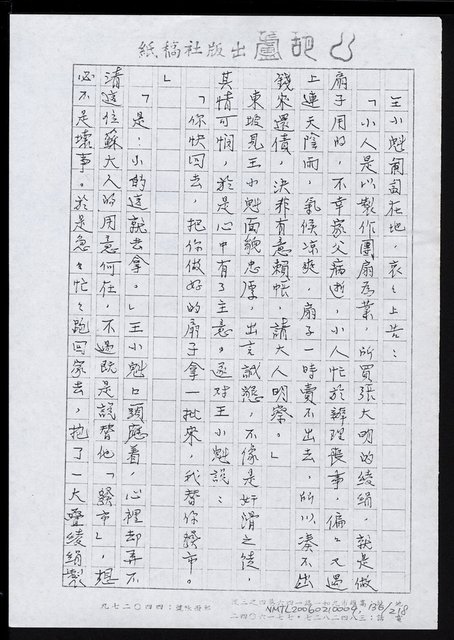 紙稿社版出蘆葫
王小魁匍匐在地，哀哀上告：
「小人是以製作團扇為業，所買張大明的綾絹，就是做
扇子用的，不幸家父病逝，小人忙於辦理喪事，偏偏又遇
上連天陰雨，氣候涼爽，扇子一時賣不出去，所以湊不出
錢來還債，決非有意賴帳，請大人明察。」
東坡見王小魁面貌忠厚，出言誠懇，不像是奸滑之徒，
其情可憫，於是心中有了主意。遂對王小魁說：
「你快回去，把你做好的扇子拿一批來，我替你發市。
」
「是！小的這就去拿。」王小魁口頭應着，心裡却弄不
清這位蘇大人的用意何在，不過既是說替他「發市」，想
必不是壞事。於是急急忙忙跑回家去，抱了一大疊綾絹製
NMTL20060210009, 136/218
九七二〇四四